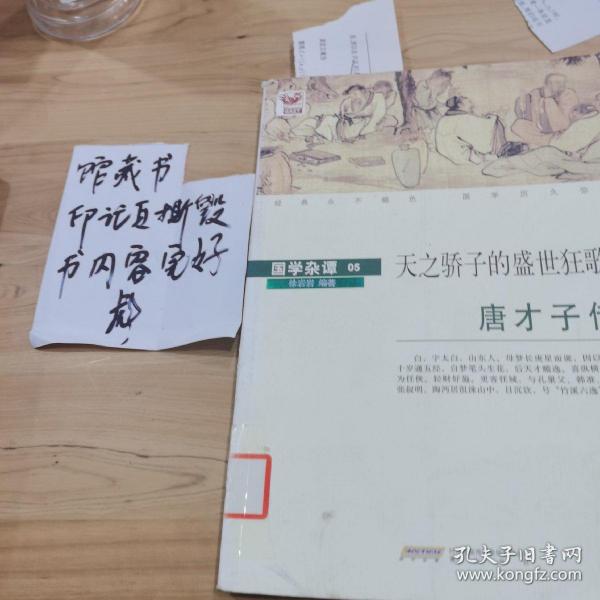 馆藏书
印记页撕毁
书内容完好
经典永不褪色 国学历久弥
国学杂谭 05
徐岩岩 编著
天之骄子的盛世狂歌
唐才子传
白，字太白，山东人。母梦长庚星而诞，因以
十岁通五经，自梦笔头生花，后天才赡逸。喜纵横
为任侠，轻财好施。更客任城，与孔巢父、韩准、
张叔明、陶沔居徂徕山中，日沉饮，号“竹溪六逸
孔夫子旧书网
www.kongfz.com